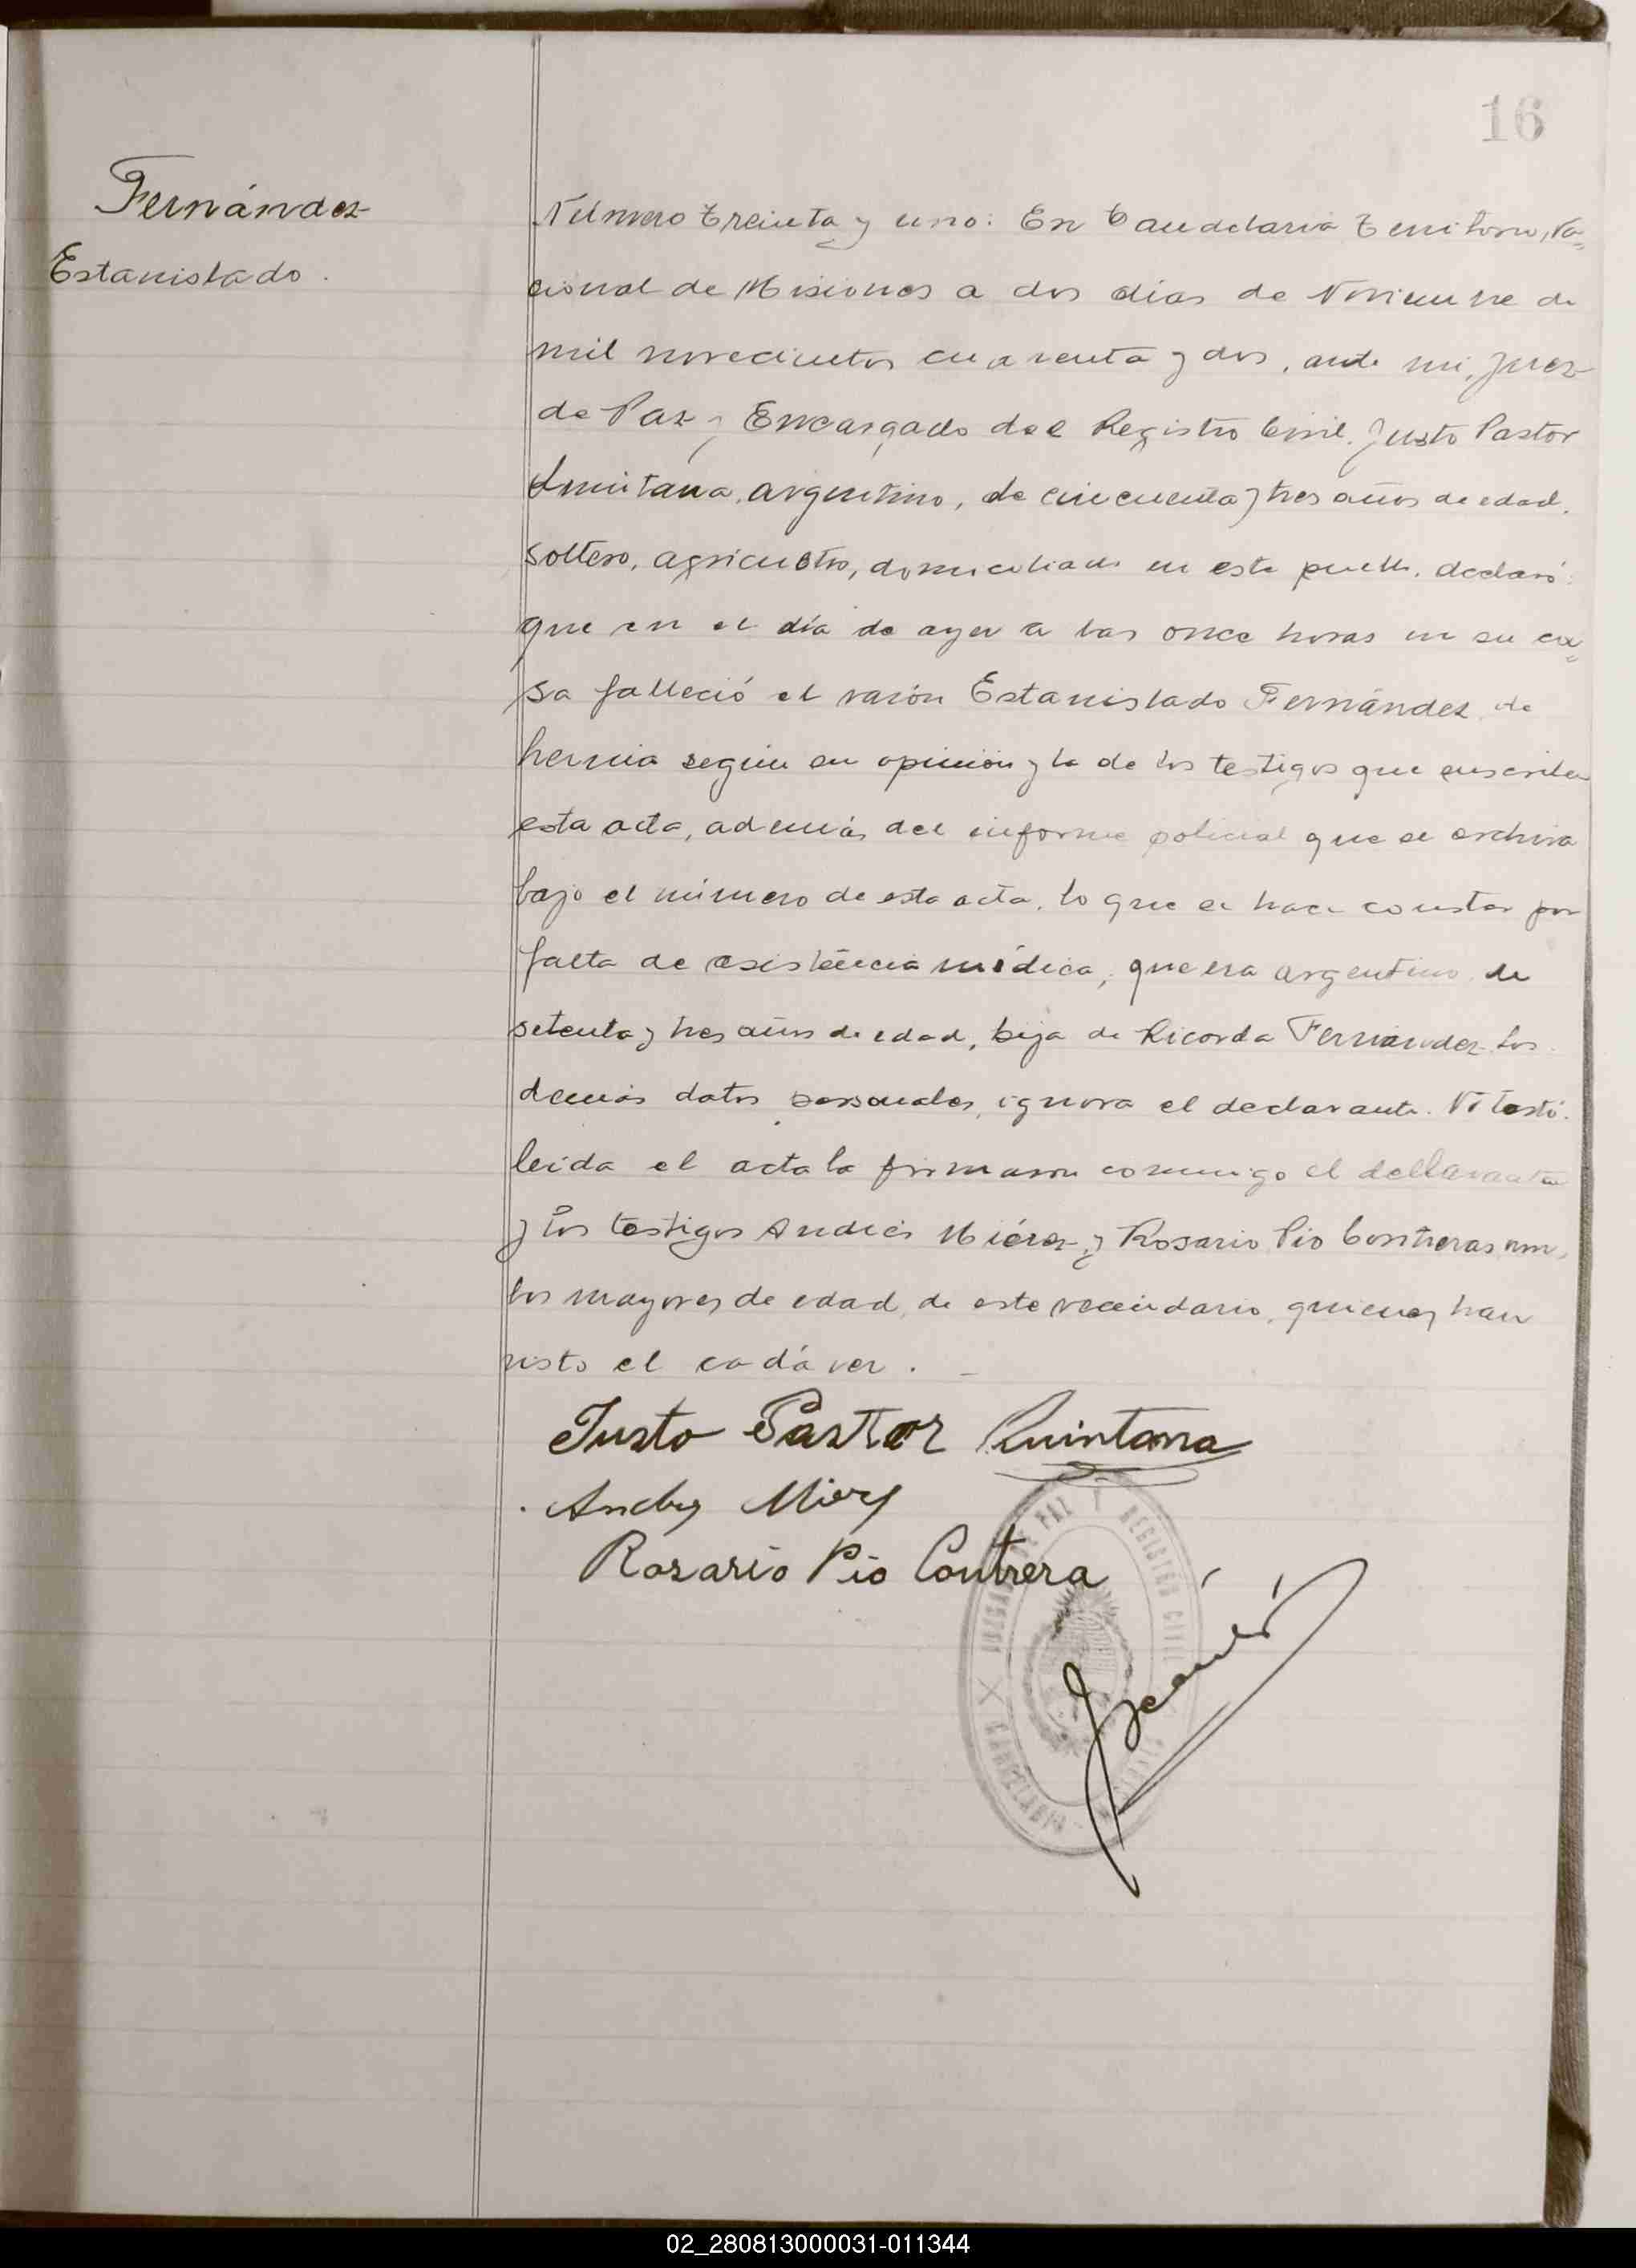 16
Fernández
Estanislado.
Número treinta y uno: En Candelaria Territorio, Na=
cional de Misiones a dos días de Noviembre de
mil novecientos cuarenta y dos, ante mi, Juez
de Paz y Encargado del Registro Civil. Justo Pastor
Quintana, argentino, de cincuenta y tres años de edad,
soltero, agricultor, domiciliado en este pueblo, declaró:
que en el día de ayer a las once horas en su ca=
sa falleció el varón Estanislado Fernández, de
hernia según su opinión y la de los testigos que suscriben
esta acta, además del informe policial que se archiva
bajo el número de esta acta, lo que se hace constar por
falta de asistencia médica, que era argentino de
setenta y tres años de edad, hija de Ricarda Fernández. Los
demás datos personales, ignora el declarante. No testó.
leída el acta la firmaron conmigo el declarante
y los testigos Andrés Miérez y Rosario Pío Contreras, am=
bos mayores de edad, de este vecindario, quienes han
visto el cadáver.
Justo Pastor Quintana
Andres Mierez
Rosario Pio Contrera
JUZGADO DE PAZ Y REGISTRO CIVIL
CANDELARIA
02_280813000031-011344